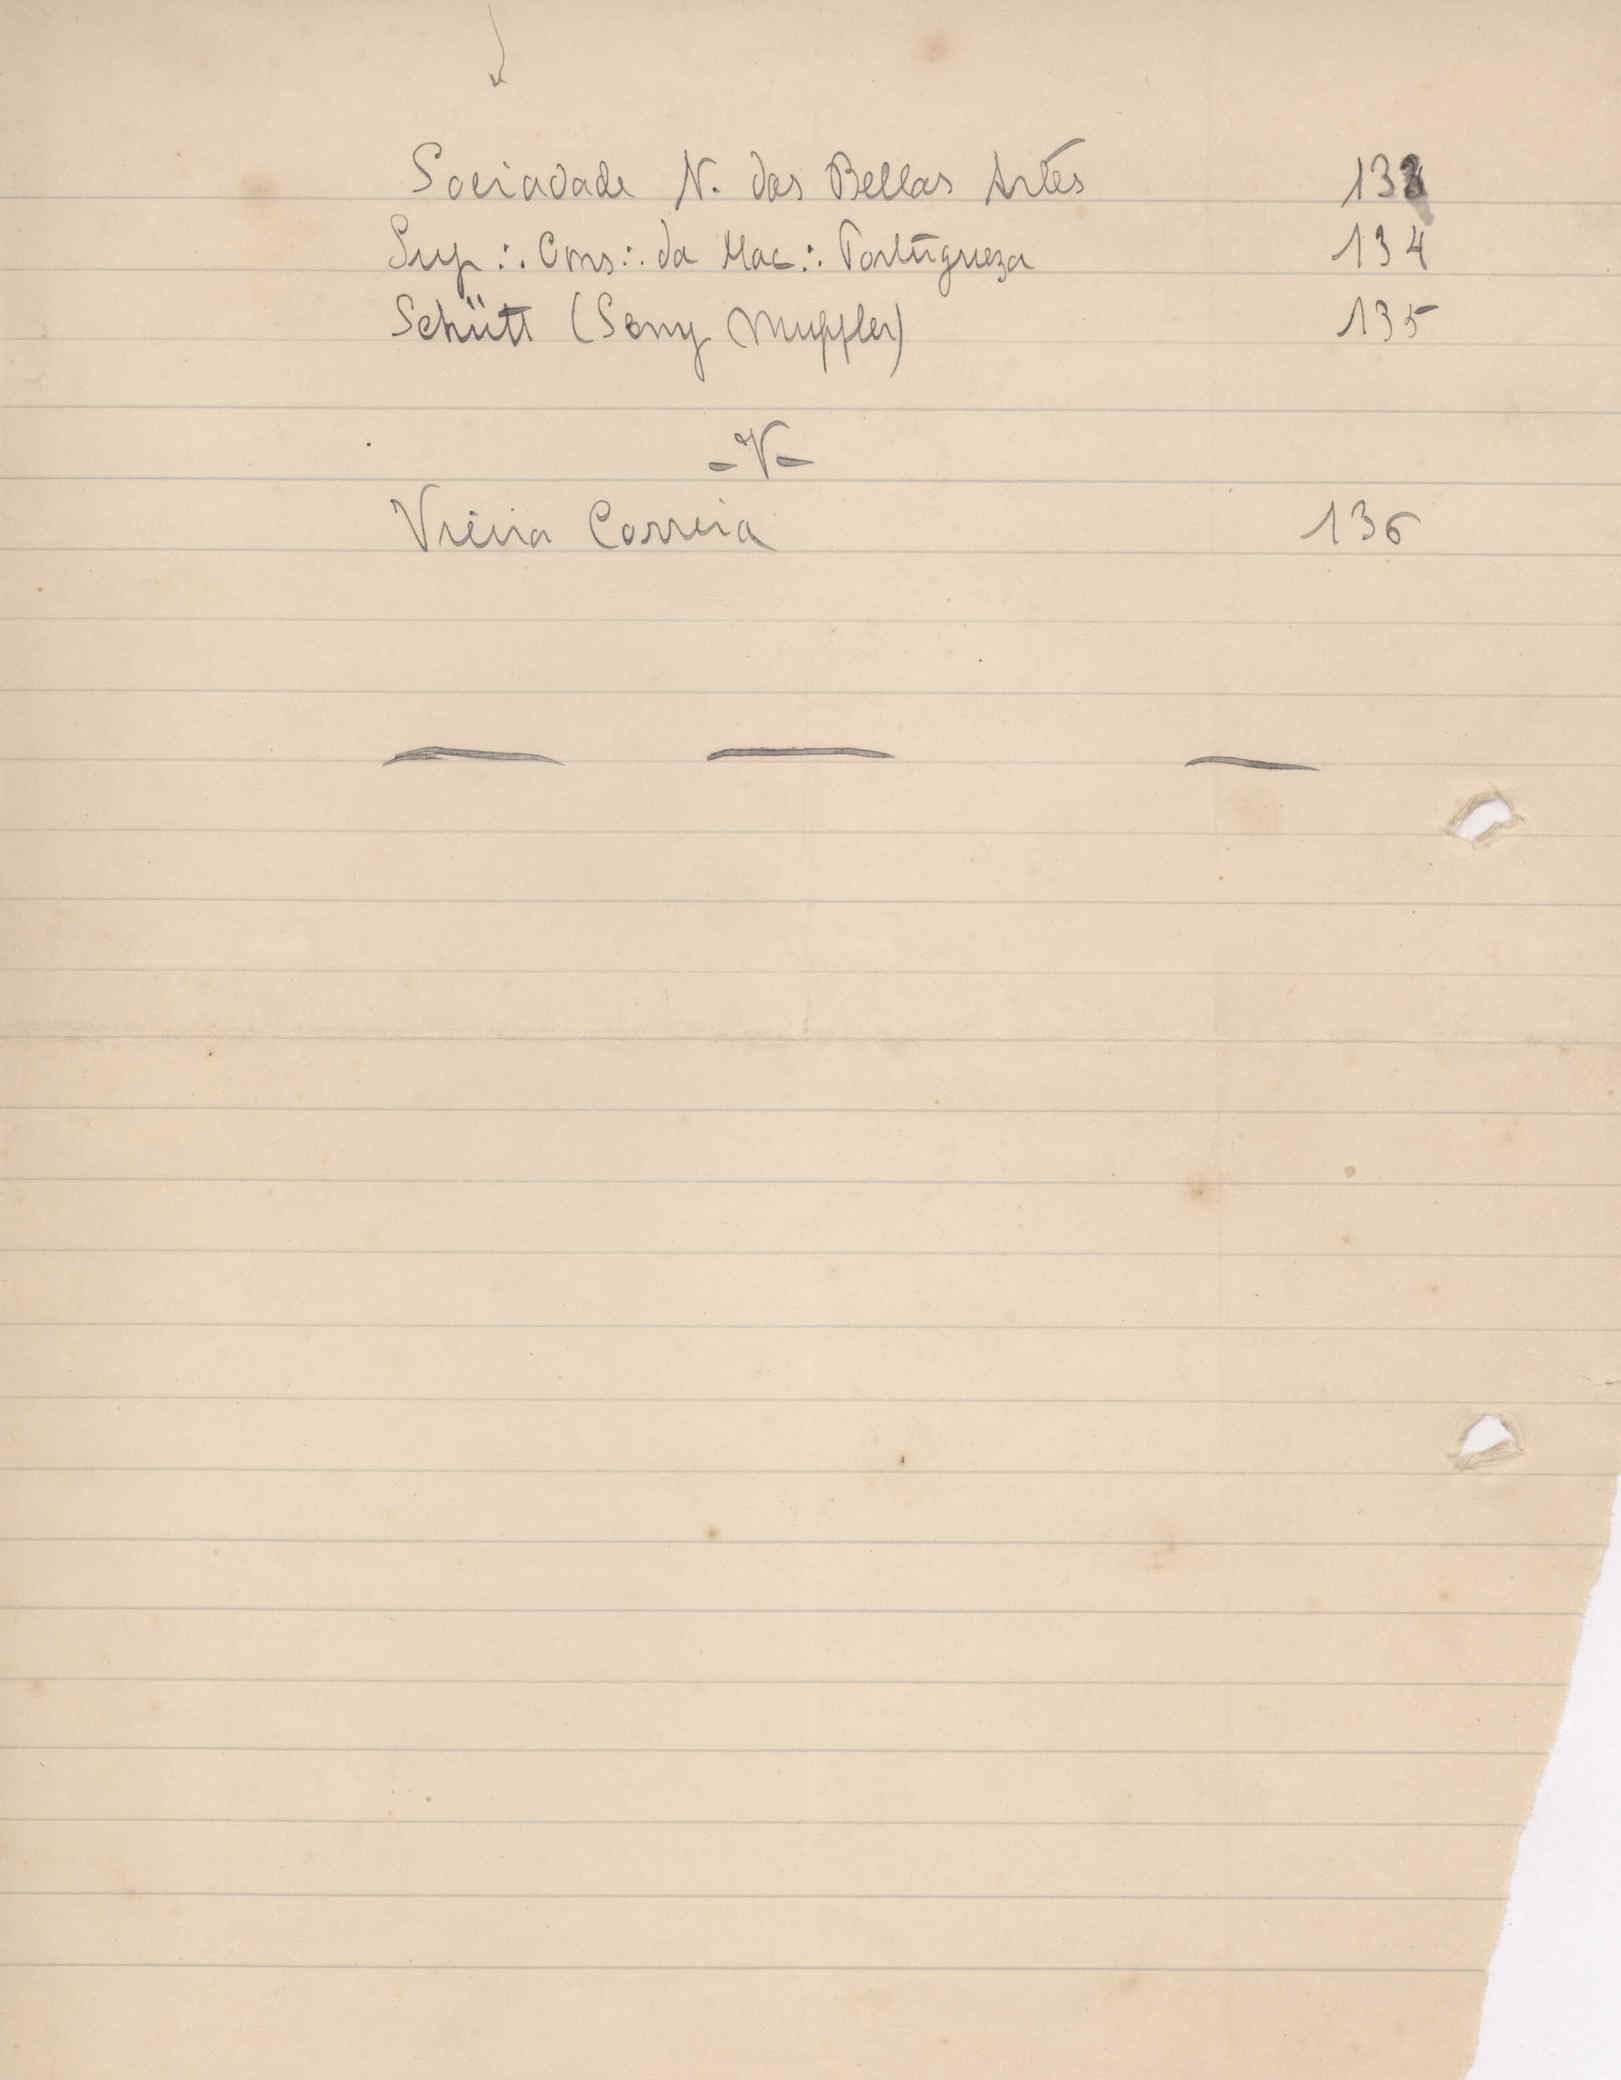 Sociadade N. das Bellas Artes 133
Sup∴ Cons∴ da Mac∴ Portugueza 134
Schütt (Sony Muffler) 135
- V -
Vieira Correia 136